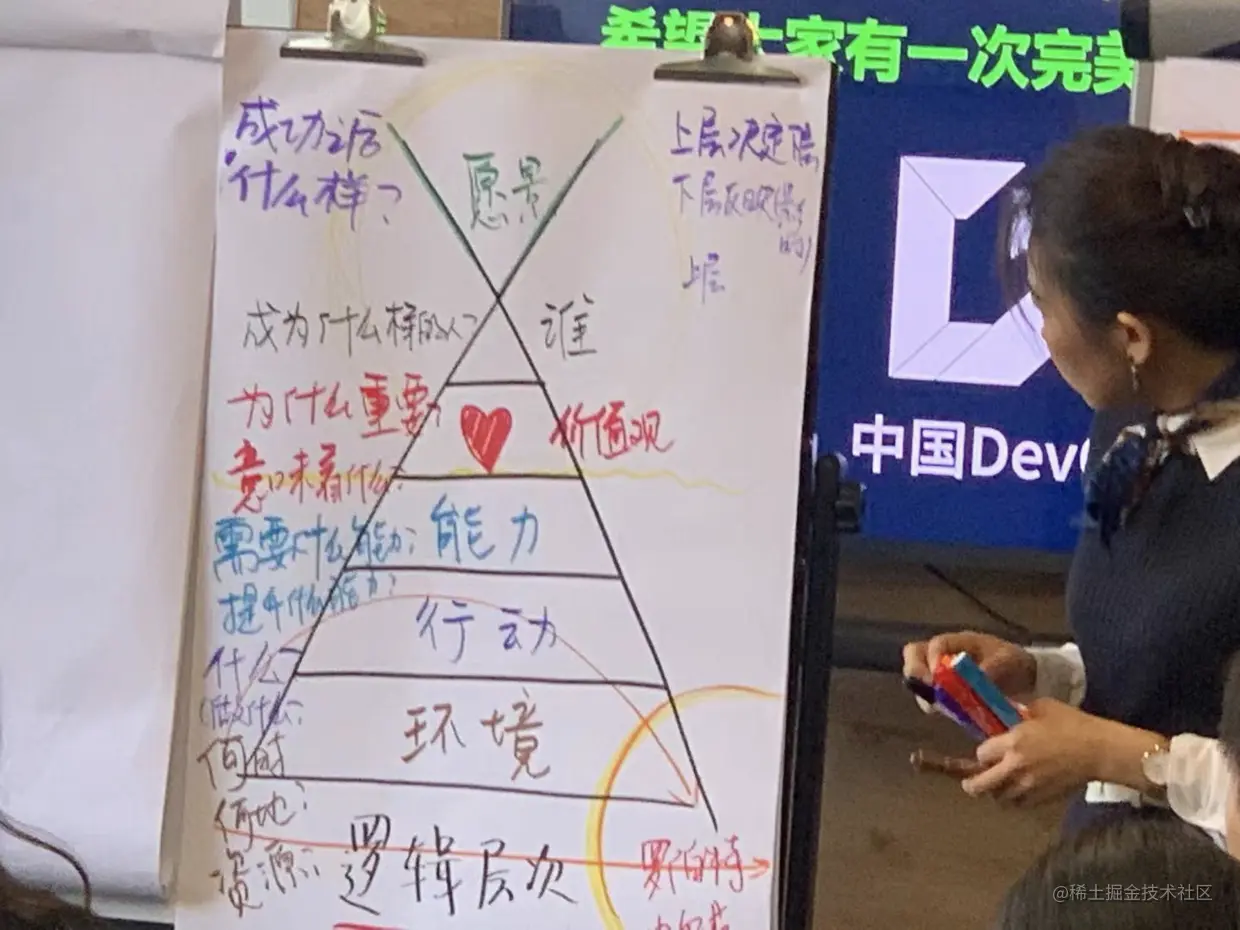 希望大家有一次完美
成功之后
什么样？
愿景
上层决定下层
下层反映
上层
成为什么样的人？
谁
为什么重要？
价值观
意味着什么？
需要什么能力？
能力
提升什么能力？
行动
什么？
做什么？
环境
何时
何地？
资源？
逻辑层次
罗伯特
中国Dev
@稀土掘金技术社区